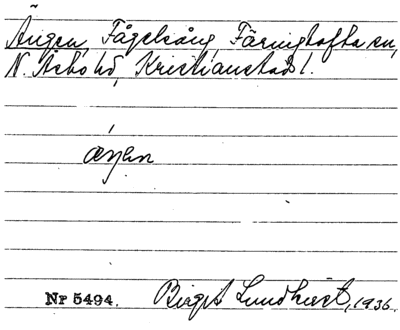 Ängen, Fågelsång, Färingtofta sn,
N. Åsbo hd, Kristianstads l.
Nr 5494. Birgit Lundkvist, 1936.